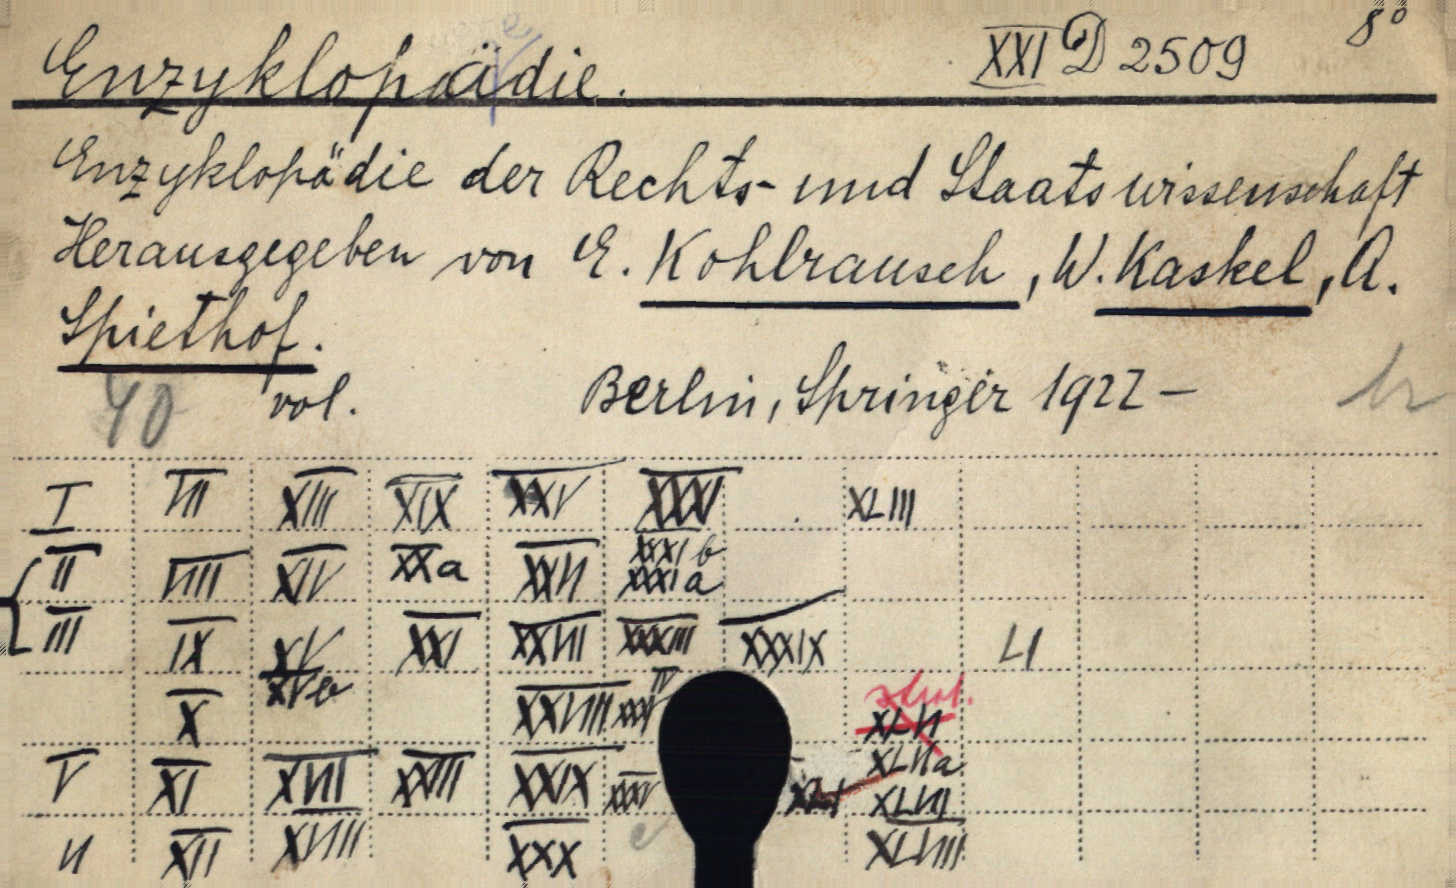 Enzyklopädie. XXI D 2509 8°
Enzyklopädie der Rechts- und Staatswissenschaft
Herausgegeben von E. Kohlrausch, W. Kaskel, A.
Spiethof.
40 vol. Berlin, Springer 1922 –
I VII XIII XIX XXV XXXI XLIII
II VIII XIV XXa XXVI XXXI b
XXXI a
III IX XV XXI XXVII XXXIII XXXIX LI
XVb
X XXVIII XXXIV XLVI
V XI XVII XXIII XXIX XXXV XLVIa
XLVII
VI XII XVIII XXX XLVIII